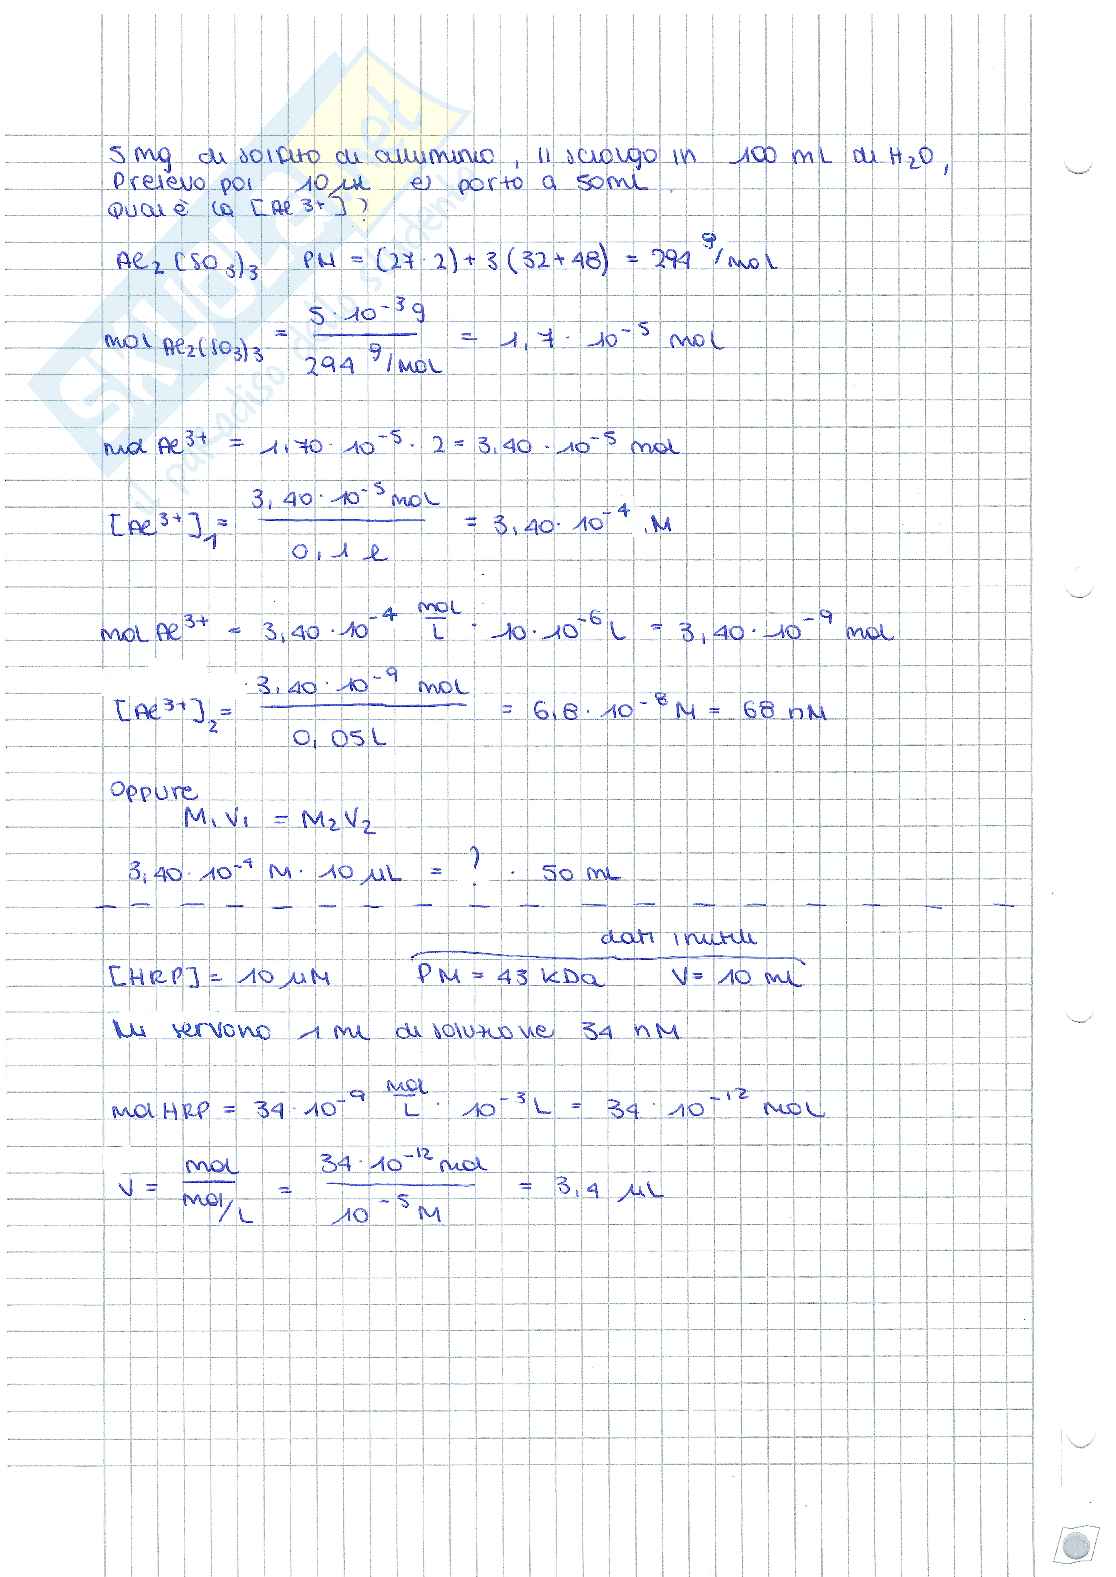 5 mg di solfito di alluminio, li sciolgo in 100 mL di H₂O,
Prelevo poi 10 μL e porto a 50 mL.
Qual è la [Al³⁺]?
Al₂(SO₃)₃ PM = (27·2)+3(32+48) = 294 g/mol
mol Al₂(SO₃)₃ = 5·10⁻³g / 294 g/mol = 1,7·10⁻⁵ mol
mol Al³⁺ = 1,70·10⁻⁵·2 = 3,40·10⁻⁵ mol
[Al³⁺]₁ = 3,40·10⁻⁵ mol / 0,1 l = 3,40·10⁻⁴ M
mol Al³⁺ = 3,40·10⁻⁴ mol/L · 10·10⁻⁶ L = 3,40·10⁻⁹ mol
[Al³⁺]₂ = 3,40·10⁻⁹ mol / 0,05L = 6,8·10⁻⁸ M = 68 nM
oppure
M₁V₁ = M₂V₂
3,40·10⁻⁴ M · 10 μL = ? · 50 mL
dati inutili
[HRP] = 10 μM PM = 43 KDa V = 10 mL
Mi servono 1 mL di soluzione 34 nM
mol HRP = 34·10⁻⁹ mol/L · 10⁻³ L = 34·10⁻¹² mol
V = mol / mol/L = 34·10⁻¹² mol / 10⁻⁵ M = 3,4 μL
SKUOLA.net
il paradiso dello studente